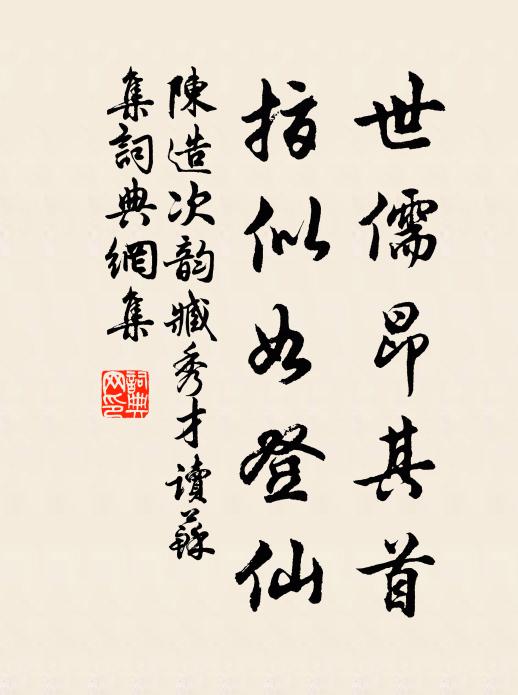 世儒昂其首
指似如登仙
陳造次韵臧秀才讀蘇
集詞典網集
詞典
网印